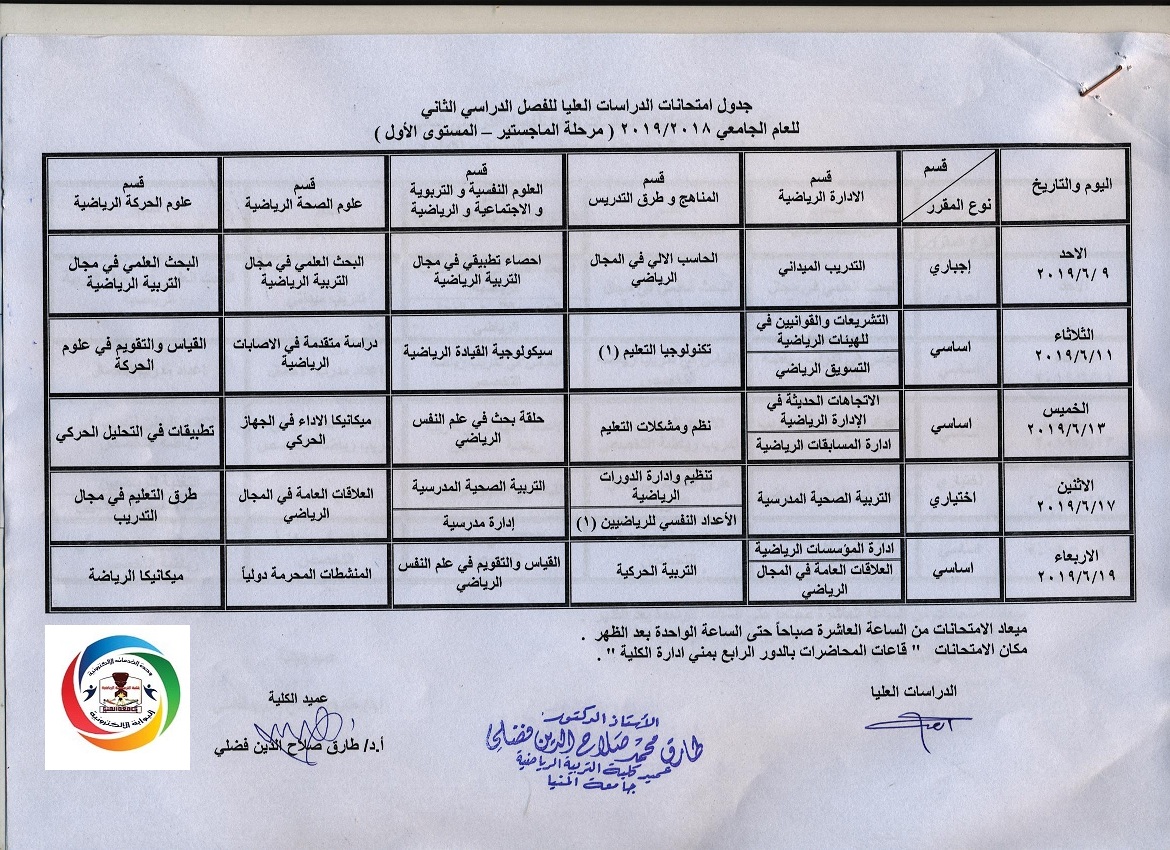 جدول امتحانات الدراسات العليا للفصل الدراسي الثاني
للعام الجامعي ٢٠١٩/٢٠١٨ ( مرحلة الماجستير – المستوى الأول )
اليوم والتاريخ
قسم
نوع المقرر
قسم
الادارة الرياضية
قسم
المناهج و طرق التدريس
قسم
العلوم النفسية و التربوية
و الاجتماعية و الرياضية
قسم
علوم الصحة الرياضية
قسم
علوم الحركة الرياضية
الاحد
٢٠١٩/٦/٩
إجباري
التدريب الميداني
الحاسب الالي في المجال
الرياضي
احصاء تطبيقي في مجال
التربية الرياضية
البحث العلمي في مجال
التربية الرياضية
البحث العلمي في مجال
التربية الرياضية
الثلاثاء
٢٠١٩/٦/١١
اساسي
التشريعات والقوانيين في
للهيئات الرياضية
التسويق الرياضي
تكنولوجيا التعليم (١)
سيكولوجية القيادة الرياضية
دراسة متقدمة في الاصابات
الرياضية
القياس والتقويم في علوم
الحركة
الخميس
٢٠١٩/٦/١٣
اساسي
الاتجاهات الحديثة في
الإدارة الرياضية
ادارة المسابقات الرياضية
نظم ومشكلات التعليم
حلقة بحث في علم النفس
الرياضي
ميكانيكا الاداء في الجهاز
الحركي
تطبيقات في التحليل الحركي
الاثنين
٢٠١٩/٦/١٧
اختياري
التربية الصحية المدرسية
تنظيم وادارة الدورات
الرياضية
الأعداد النفسي للرياضيين (١)
التربية الصحية المدرسية
إدارة مدرسية
العلاقات العامة في المجال
الرياضي
طرق التعليم في مجال
التدريب
الاربعاء
٢٠١٩/٦/١٩
اساسي
ادارة المؤسسات الرياضية
العلاقات العامة في المجال
الرياضي
التربية الحركية
القياس والتقويم في علم النفس
الرياضي
المنشطات المحرمة دولياً
ميكانيكا الرياضة
ميعاد الامتحانات من الساعة العاشرة صباحاً حتى الساعة الواحدة بعد الظهر .
مكان الامتحانات " قاعات المحاضرات بالدور الرابع بمني ادارة الكلية " .
الدراسات العليا
عميد الكلية
أ.د/ طارق صلاح الدين فضلي
الأستاذ الدكتور:
طارق محمد صلاح الدين فضلي
عميد كلية التربية الرياضية
جامعة المنيا
وحدة الخدمات الالكترونية
كلية التربية الرياضية
جامعة المنيا
البوابة الالكترونية